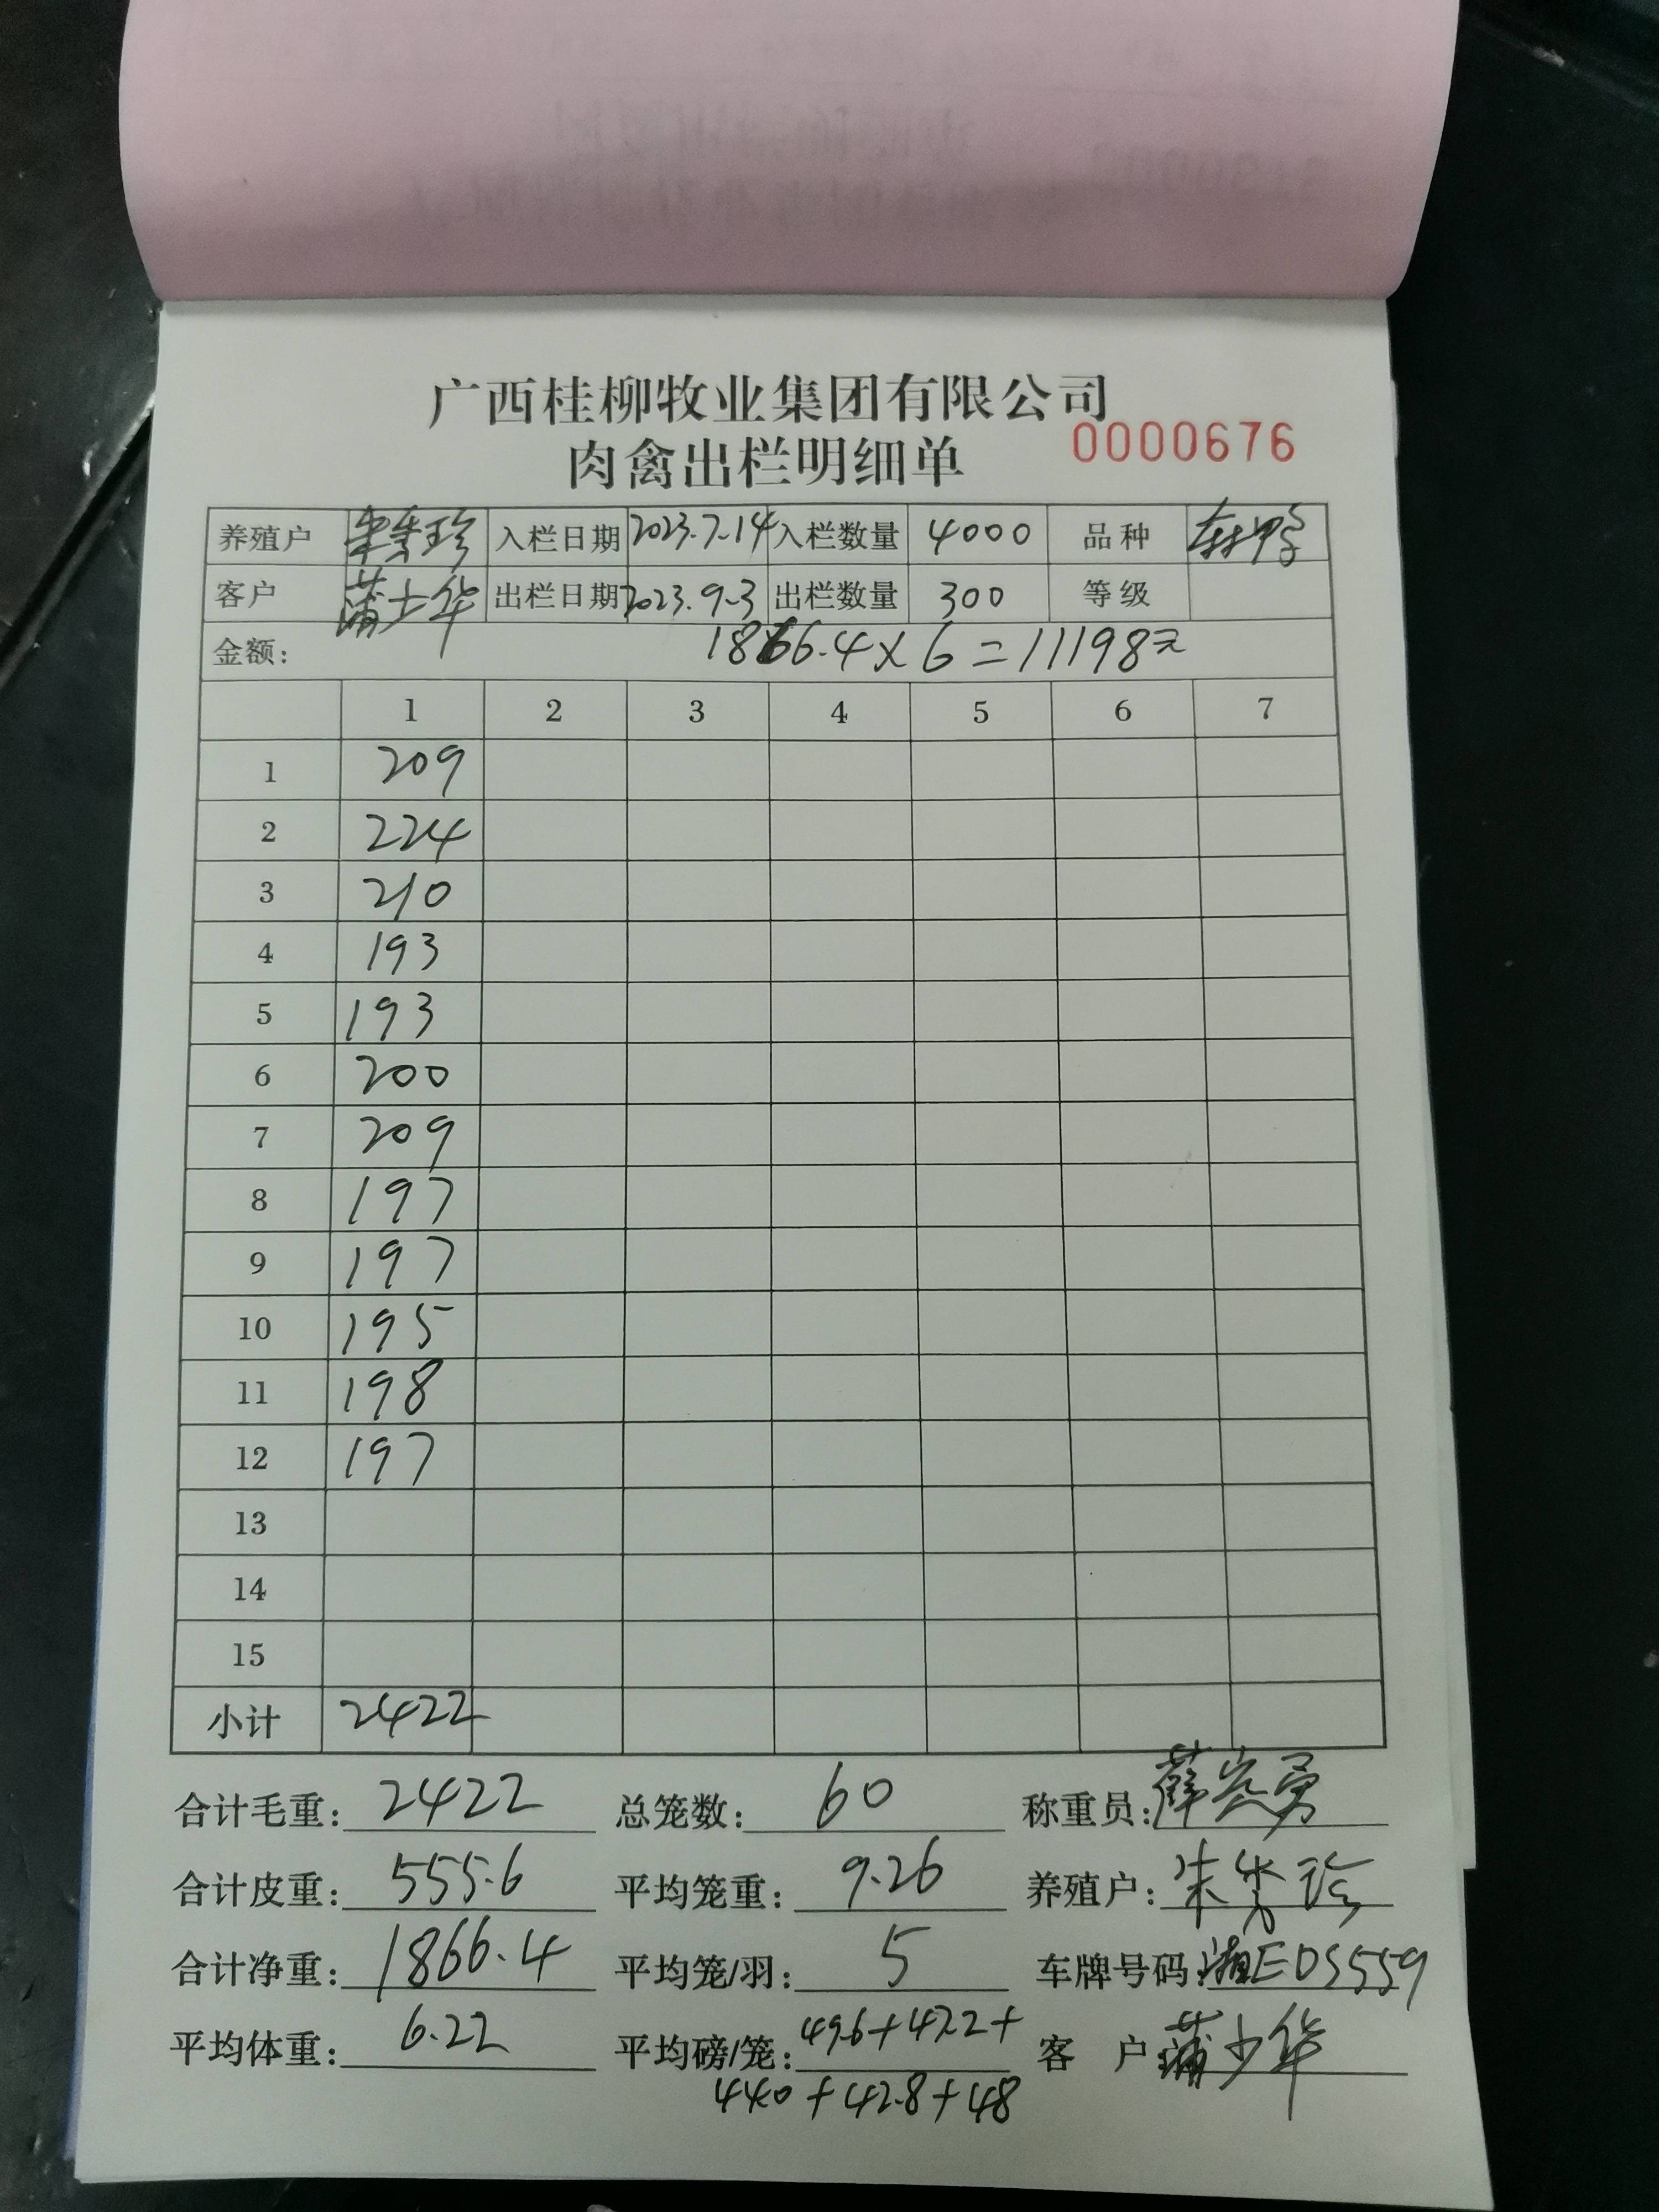 广西桂柳牧业集团有限公司
肉禽出栏明细单 0000676
养殖户 入栏日期 2023.7.14 入栏数量 4000 品种
客户 蒲少华 出栏日期 2023.9.3 出栏数量 300 等级
金额: 1866.4×6=11198元
1 2 3 4 5 6 7
1 209
2 224
3 210
4 193
5 193
6 200
7 209
8 197
9 197
10 195
11 198
12 197
13
14
15
小计 2422
合计毛重: 2422 总笼数: 60 称重员:
合计皮重: 555.6 平均笼重: 9.26 养殖户:
合计净重: 1866.4 平均笼/羽: 5 车牌号码: 湘EDS559
平均体重: 6.22 平均磅/笼: 客 户: 蒲少华